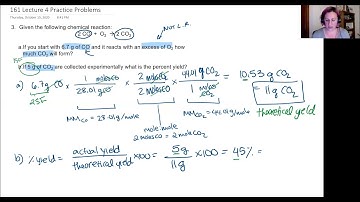 161 Lecture 4 Practice Problems
Thursday, October 15, 2020 9:41 PM
NOT L.R.
3. Given the following chemical reaction: 2 CO + O₂ → 2 CO₂
a. If you start with 6.7 g of CO and it reacts with an excess of O₂ how
much CO₂ will form?
b. If 5 g of CO₂ are collected experimentally what is the percent yield?
a) 6.7g CO × 1 mole CO / 28.01 g CO × 2 mole CO₂ / 2 mole CO × 44.01 g CO₂ / 1 mole CO₂ = 10.53 g CO₂
2SF
= 11 g CO₂
theoretical yield
MM CO = 28.01 g/mole
MM CO₂ = 44.01 g/mole
mole:mole
2 moles CO = 2 mole CO₂
b) % yield = actual yield / theoretical yield × 100 = 5g / 11g × 100 = 45% =